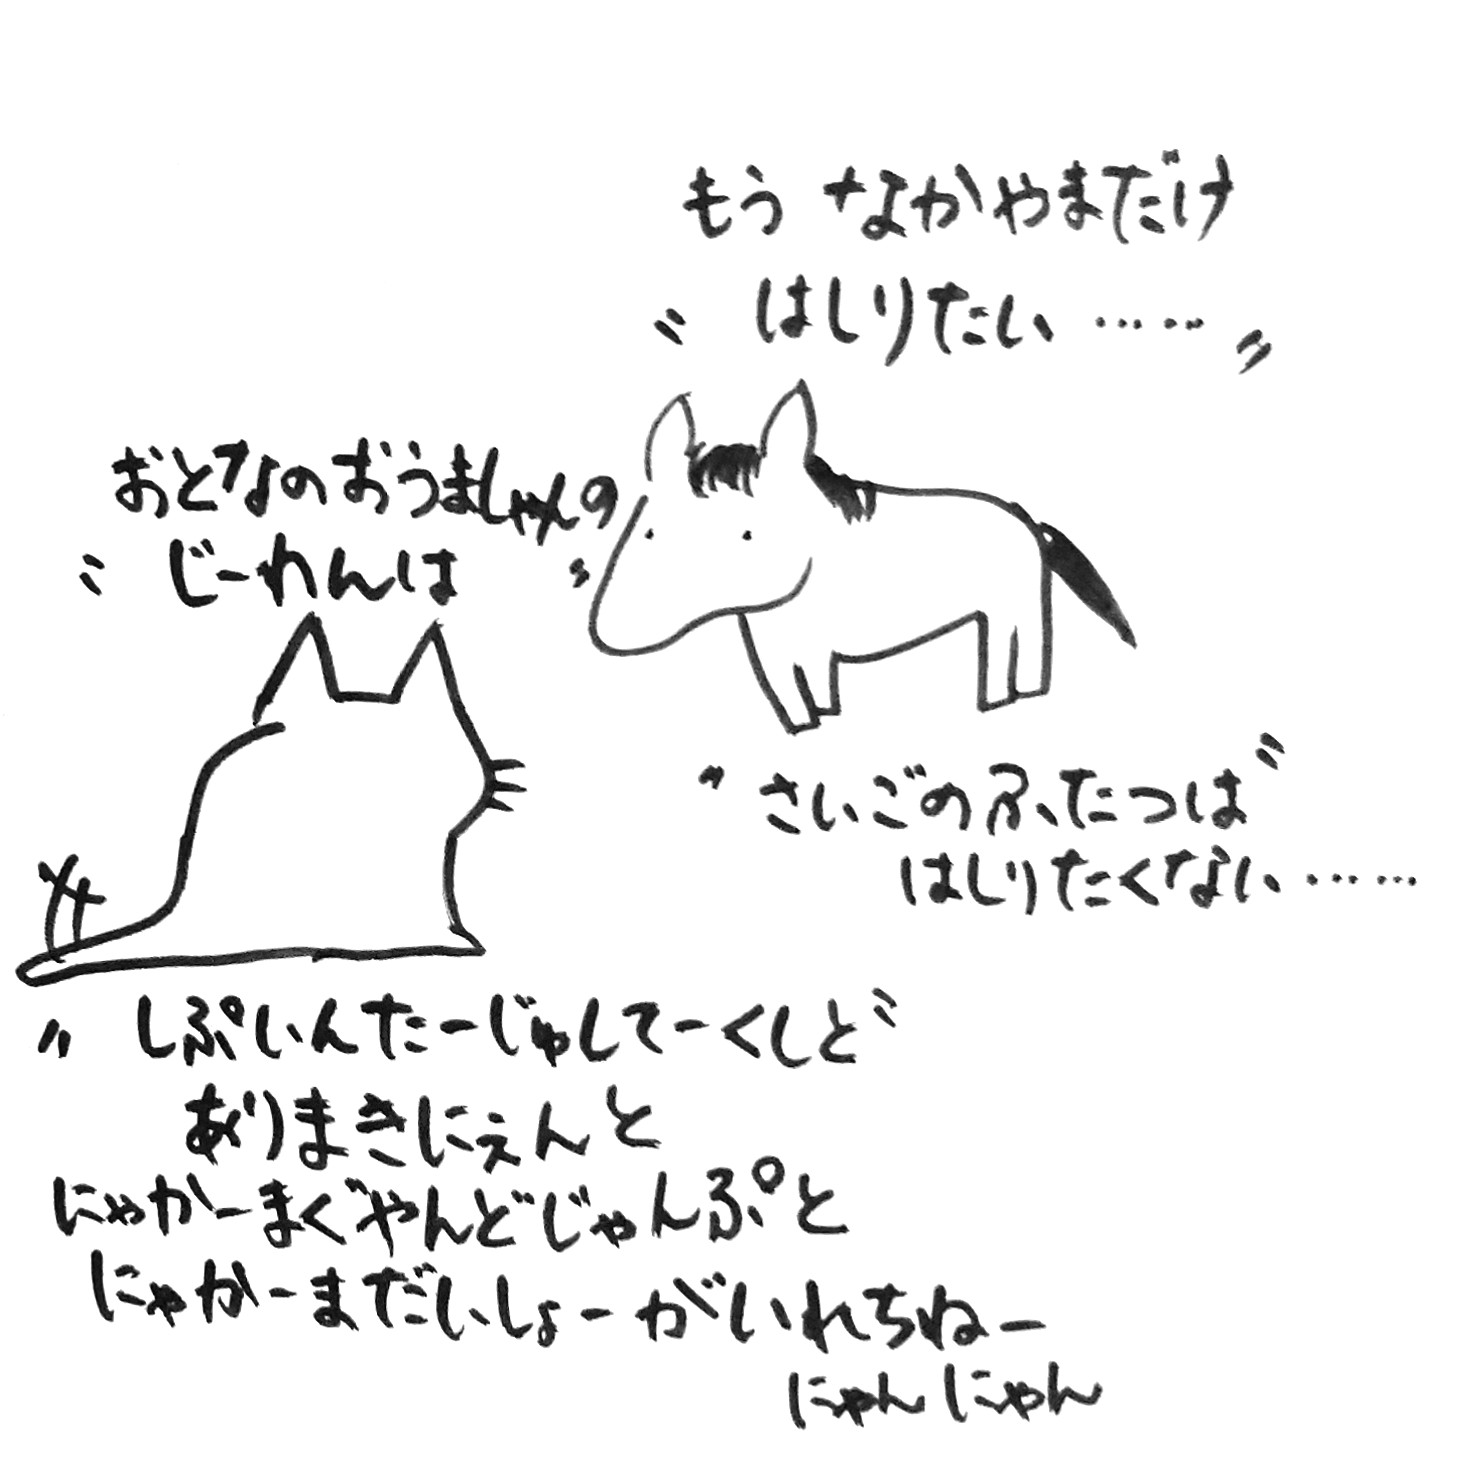 もう なかやまだけ
はしりたい……
おとなのおうましゃんの
じーわんは
さいごのふたつは
はしりたくない……
しぷいんたーじゅしてーくしと
ありまきにぇんと
にゃかーまぐやんどじゃんぷと
にゃかーまだいしょーがいれちねー
にゃんにゃん